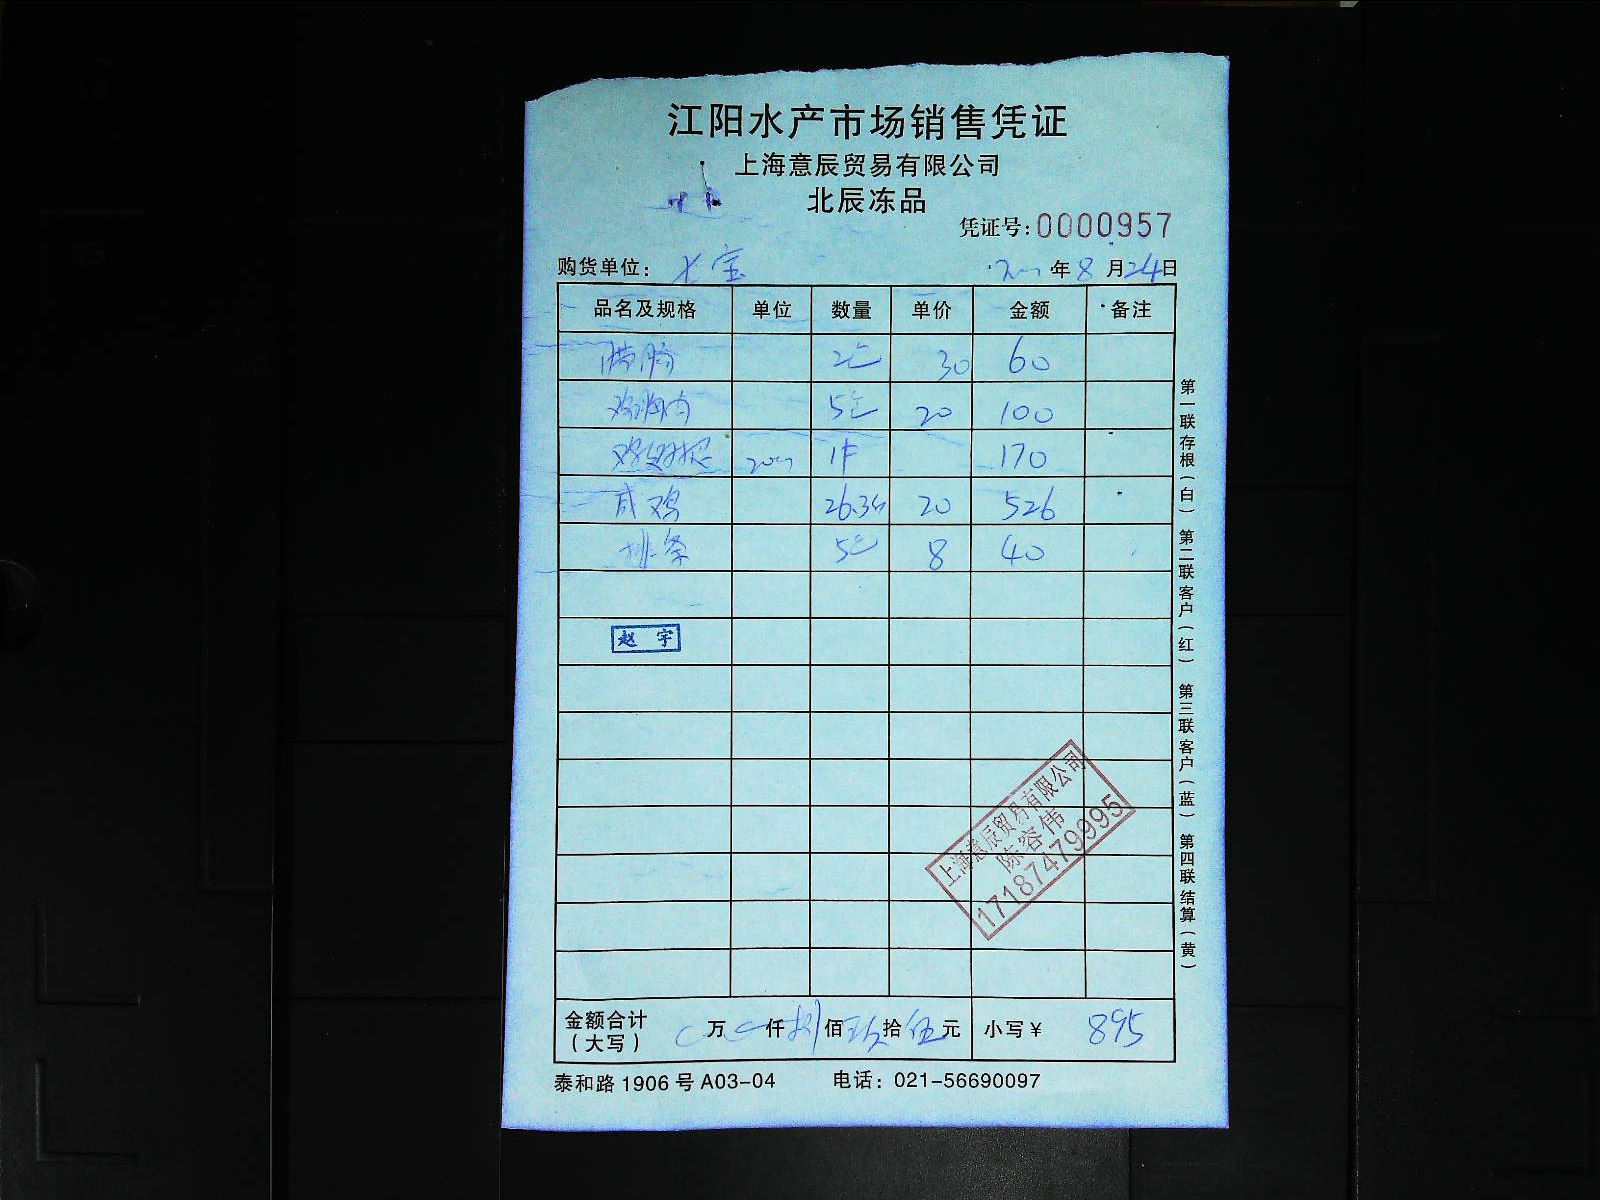 江阳水产市场销售凭证
上海意辰贸易有限公司
北辰冻品
凭证号:0000957
购货单位: 大宝 年8月24日
品名及规格 单位 数量 单价 金额 备注
30 60
鸡胸肉 5包 20 100
1件 170
咸鸡 20 526
排条 5包 8 40
赵宇
上海意辰贸易有限公司
陈容伟
17187479995
金额合计(大写) 万 仟捌佰玖拾伍元 小写¥ 895
泰和路1906号A03-04 电话: 021-56690097
第一联存根(白) 第二联客户(红) 第三联客户(蓝) 第四联结算(黄)